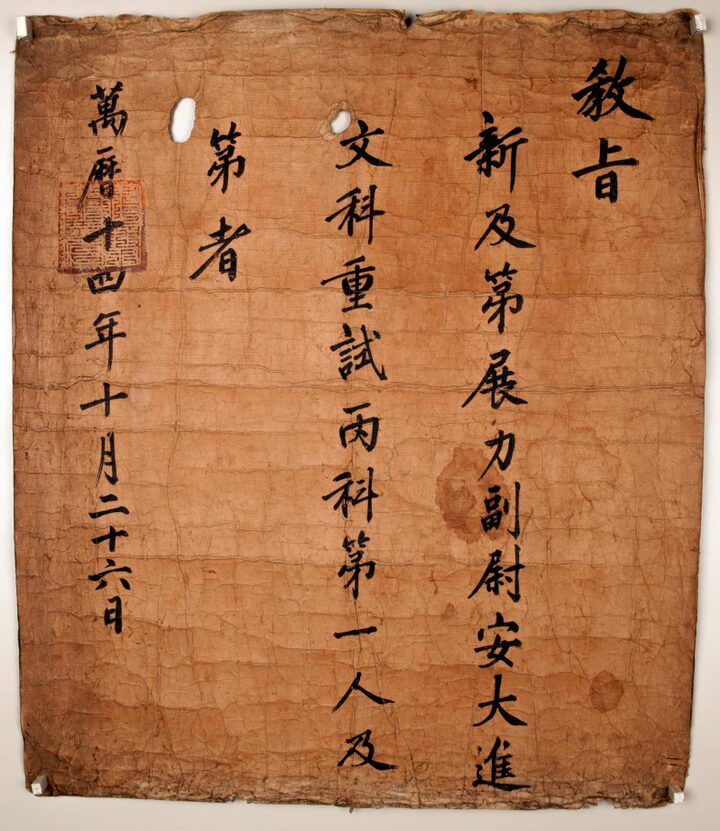 教旨
新及第展力副尉安大進
文科重試丙科第一人及
第者
萬曆十四年十月二十六日